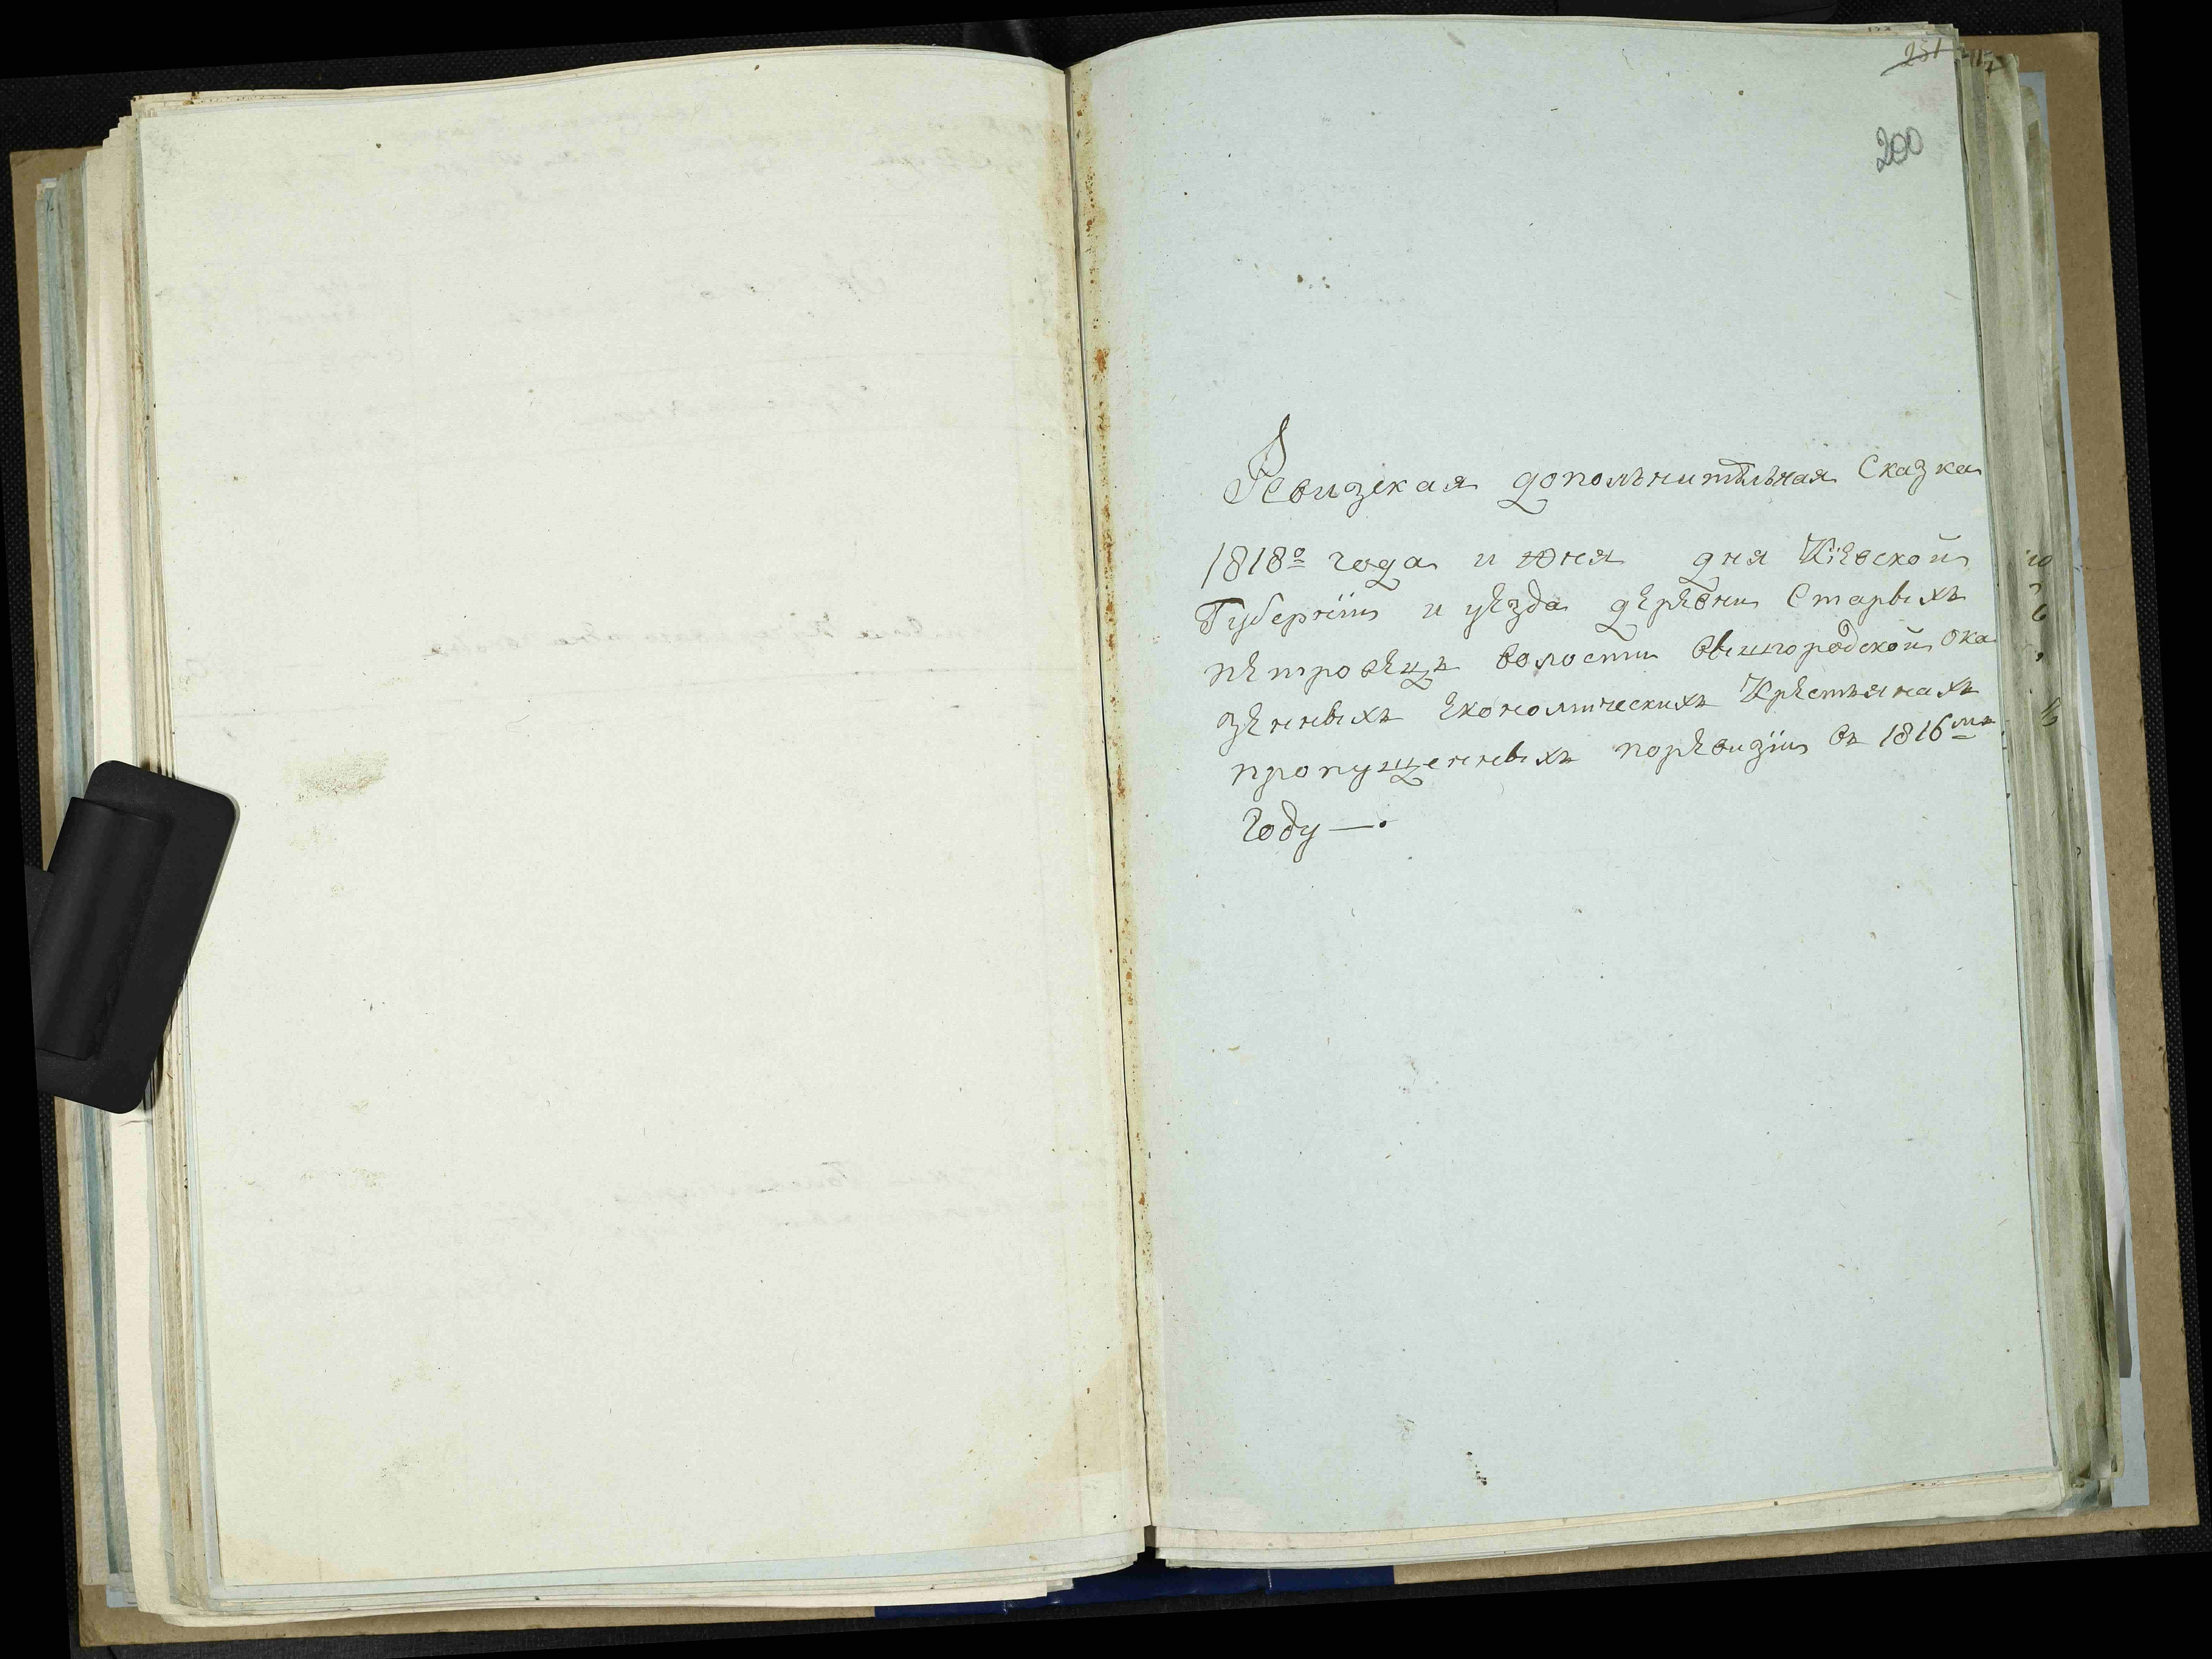 251
200
Ревизская дополънителъная Сказка
1818го года июня дня Кіевской
Губерніи и уезда деревни Старыхъ
петровецъ волости вышгородской ока
зенныхъ Економическихъ Крестьянахъ
пропущенныхъ поревизіи въ 1816мъ
Году —.